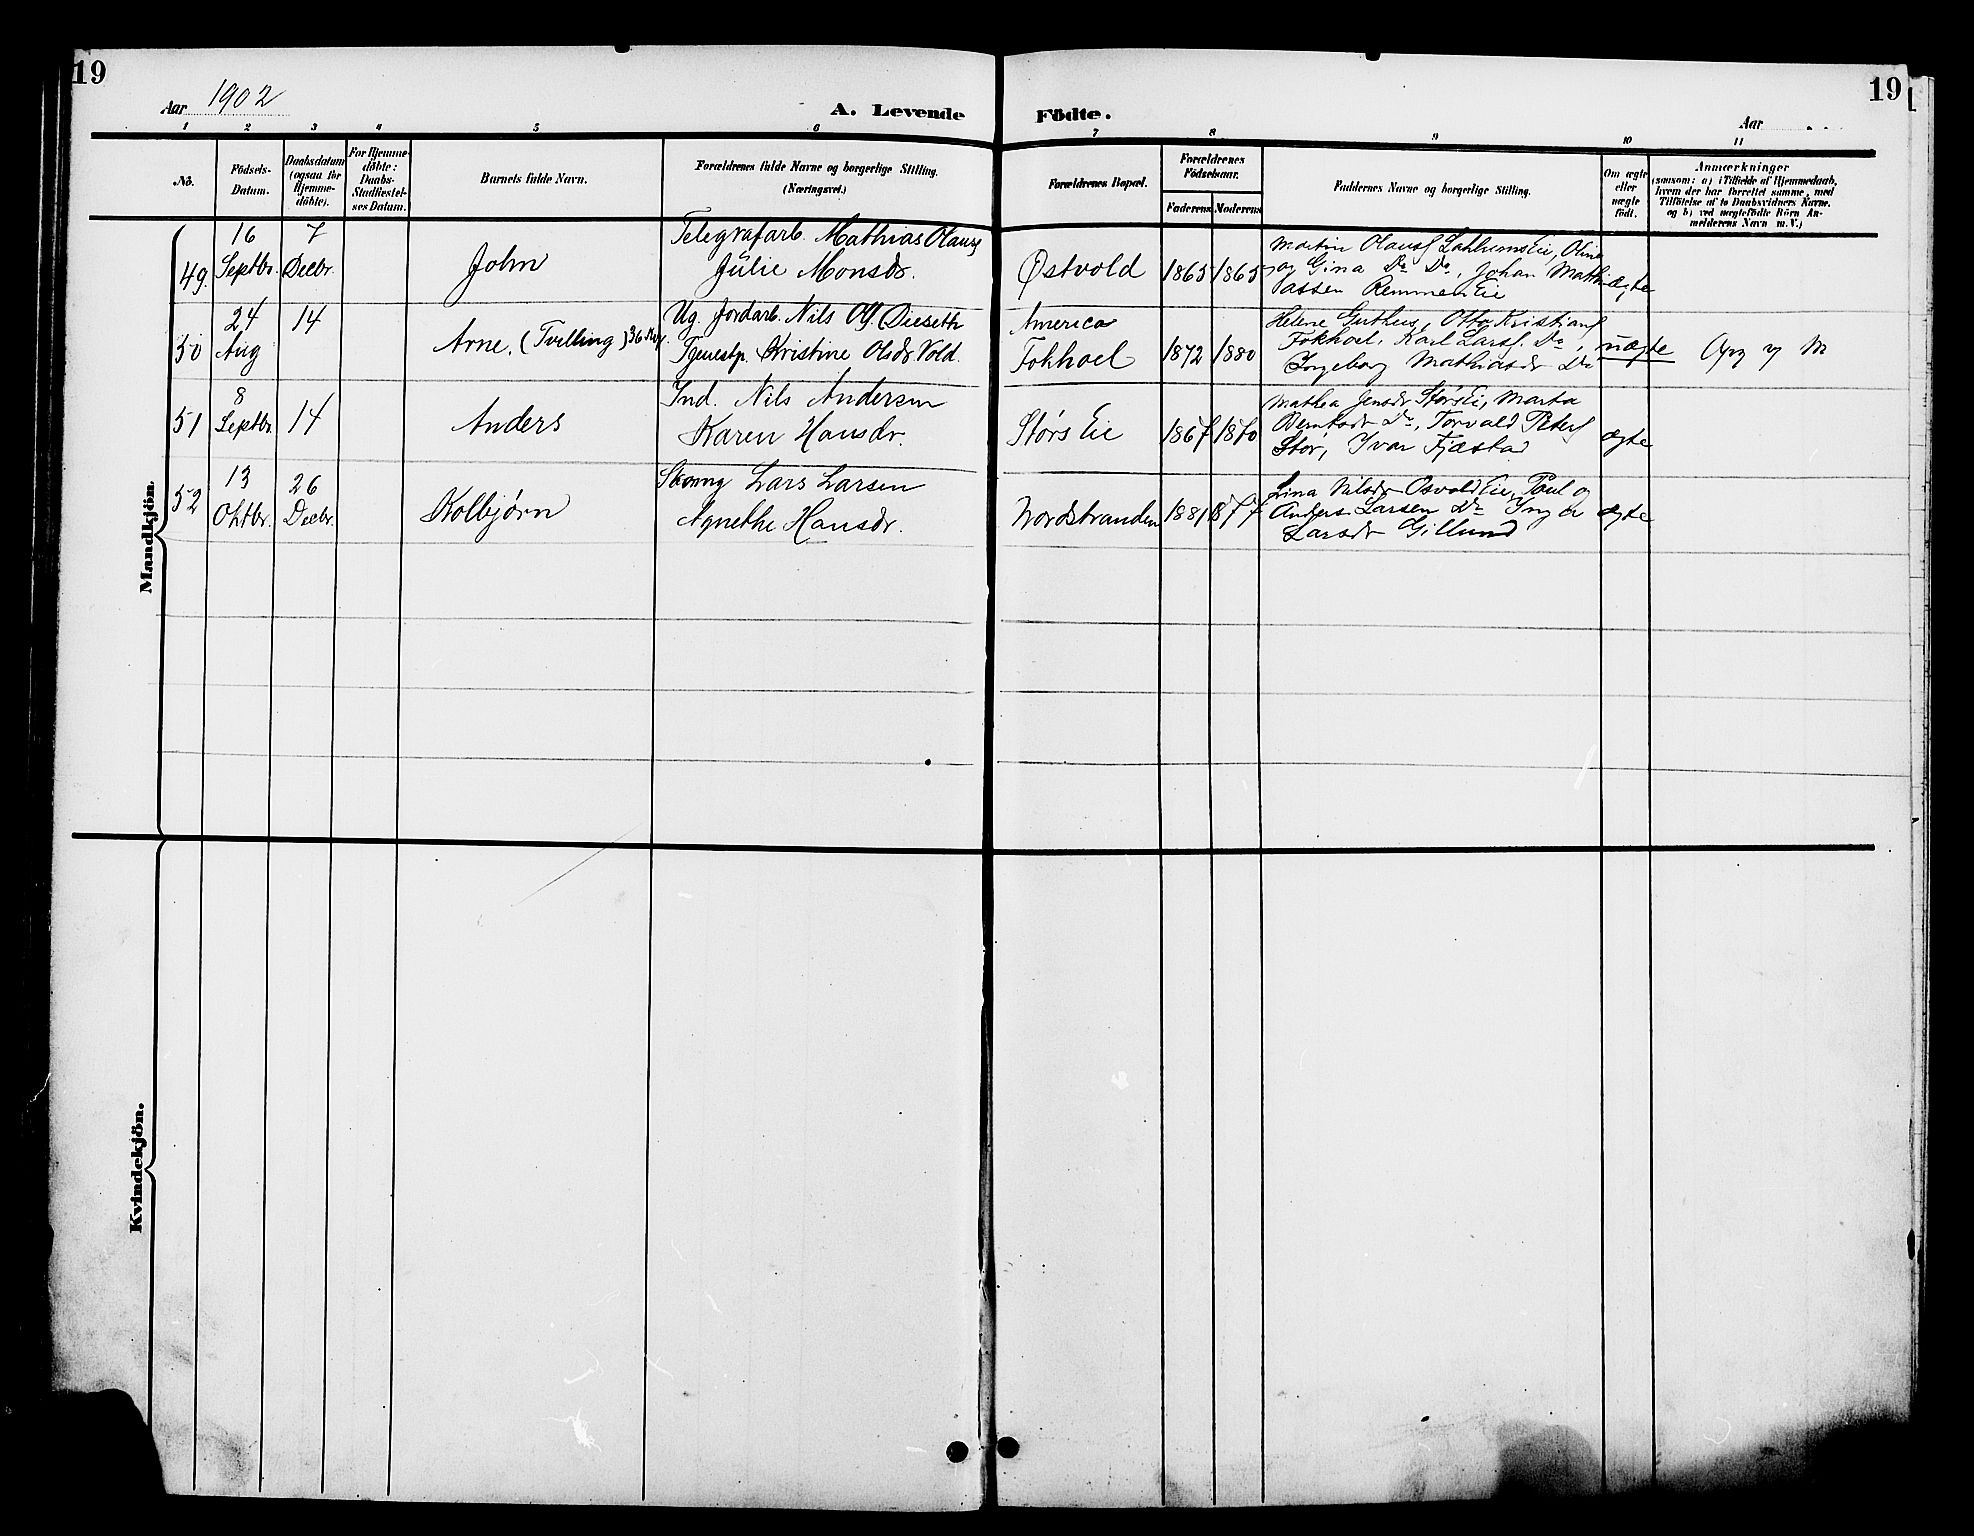 19
19
Aar 1902
A. Levende Födte.
Aar
1 2 3 4 5 6 7 8 9 10 11
No.
Födsels-
Datum.
Daabsdatum
(ogsaa for
Hjemme-
döbte).
For Hjemme-
döbte:
Daabs-
Stadfæstel-
ses Datum.
Barnets fulde Navn.
Forældrenes fulde Navne og borgerlige Stilling.
(Næringsvei.)
Forældrenes Bopæl.
Forældrenes
Födselsaar.
Faderens Moderens
Faddernes Navne og borgerlige Stilling.
Om ægte
eller
uægte
födt.
Anmærkninger
(saasom: a) i Tilfælde af Hjemmedaab,
hvem der har forrettet samme, med
Tilföielse af to Daabsvidners Navne,
og b) ved uægtefödte Börn An-
melderens Navn m.V.)
Mandkjön.
49.
16
Septbr.
7
Decbr.
John
Telegrafarb. Mathias Olauss
Julie Monsdr.
Østvold
1865
1865
Martin Olauss Eie, Olina
og Gina Do Do, Johan Math
Remmen Eie
ægte
50
24
Aug
14
Arne. (Tvilling)
Ug. Jordarb. Nils Dieseth
Tjenestp. Kristine Olsdr Vold.
America
Fokhoel
1872
1880
Helene Guthus, Otto Kristians
Fokhoel, Karl Larss. Do,
Ingeborg Mathiasdr Do
uægte
M
51
8
Septbr
14
Anders
Ind. Nils Andersen
Karen Hansdr.
Størs Eie
1867
1870
Mathea Jensdr Størs Ei, Marta
Berntsdr Do, Torvald Peters
Stør, Ivar Fjæstad
ægte
52
13
Oktbr.
26
Decbr.
Kolbjørn
Lars Larsen
Agnethe Hansdr.
Nordstranden
1881
1877
Lina Nilsdr Osvold Eie, Paul og
Anders Larsen Do Inger
Larsdr Gillund
ægte
Kvindekjön.